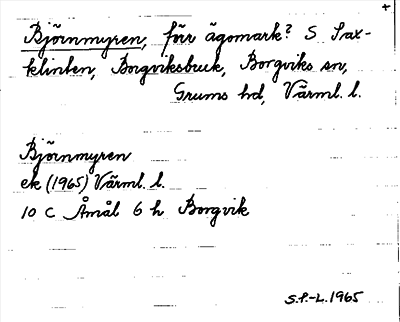 Björnmyren, förr ägomark? S Sax-
klinten, Borgviksbruk, Borgviks sn,
Grums hd, Värml. l.
Björnmyren
ek (1965) Värml. l.
10 C Åmål 6 h Borgvik
S.P.-L. 1965